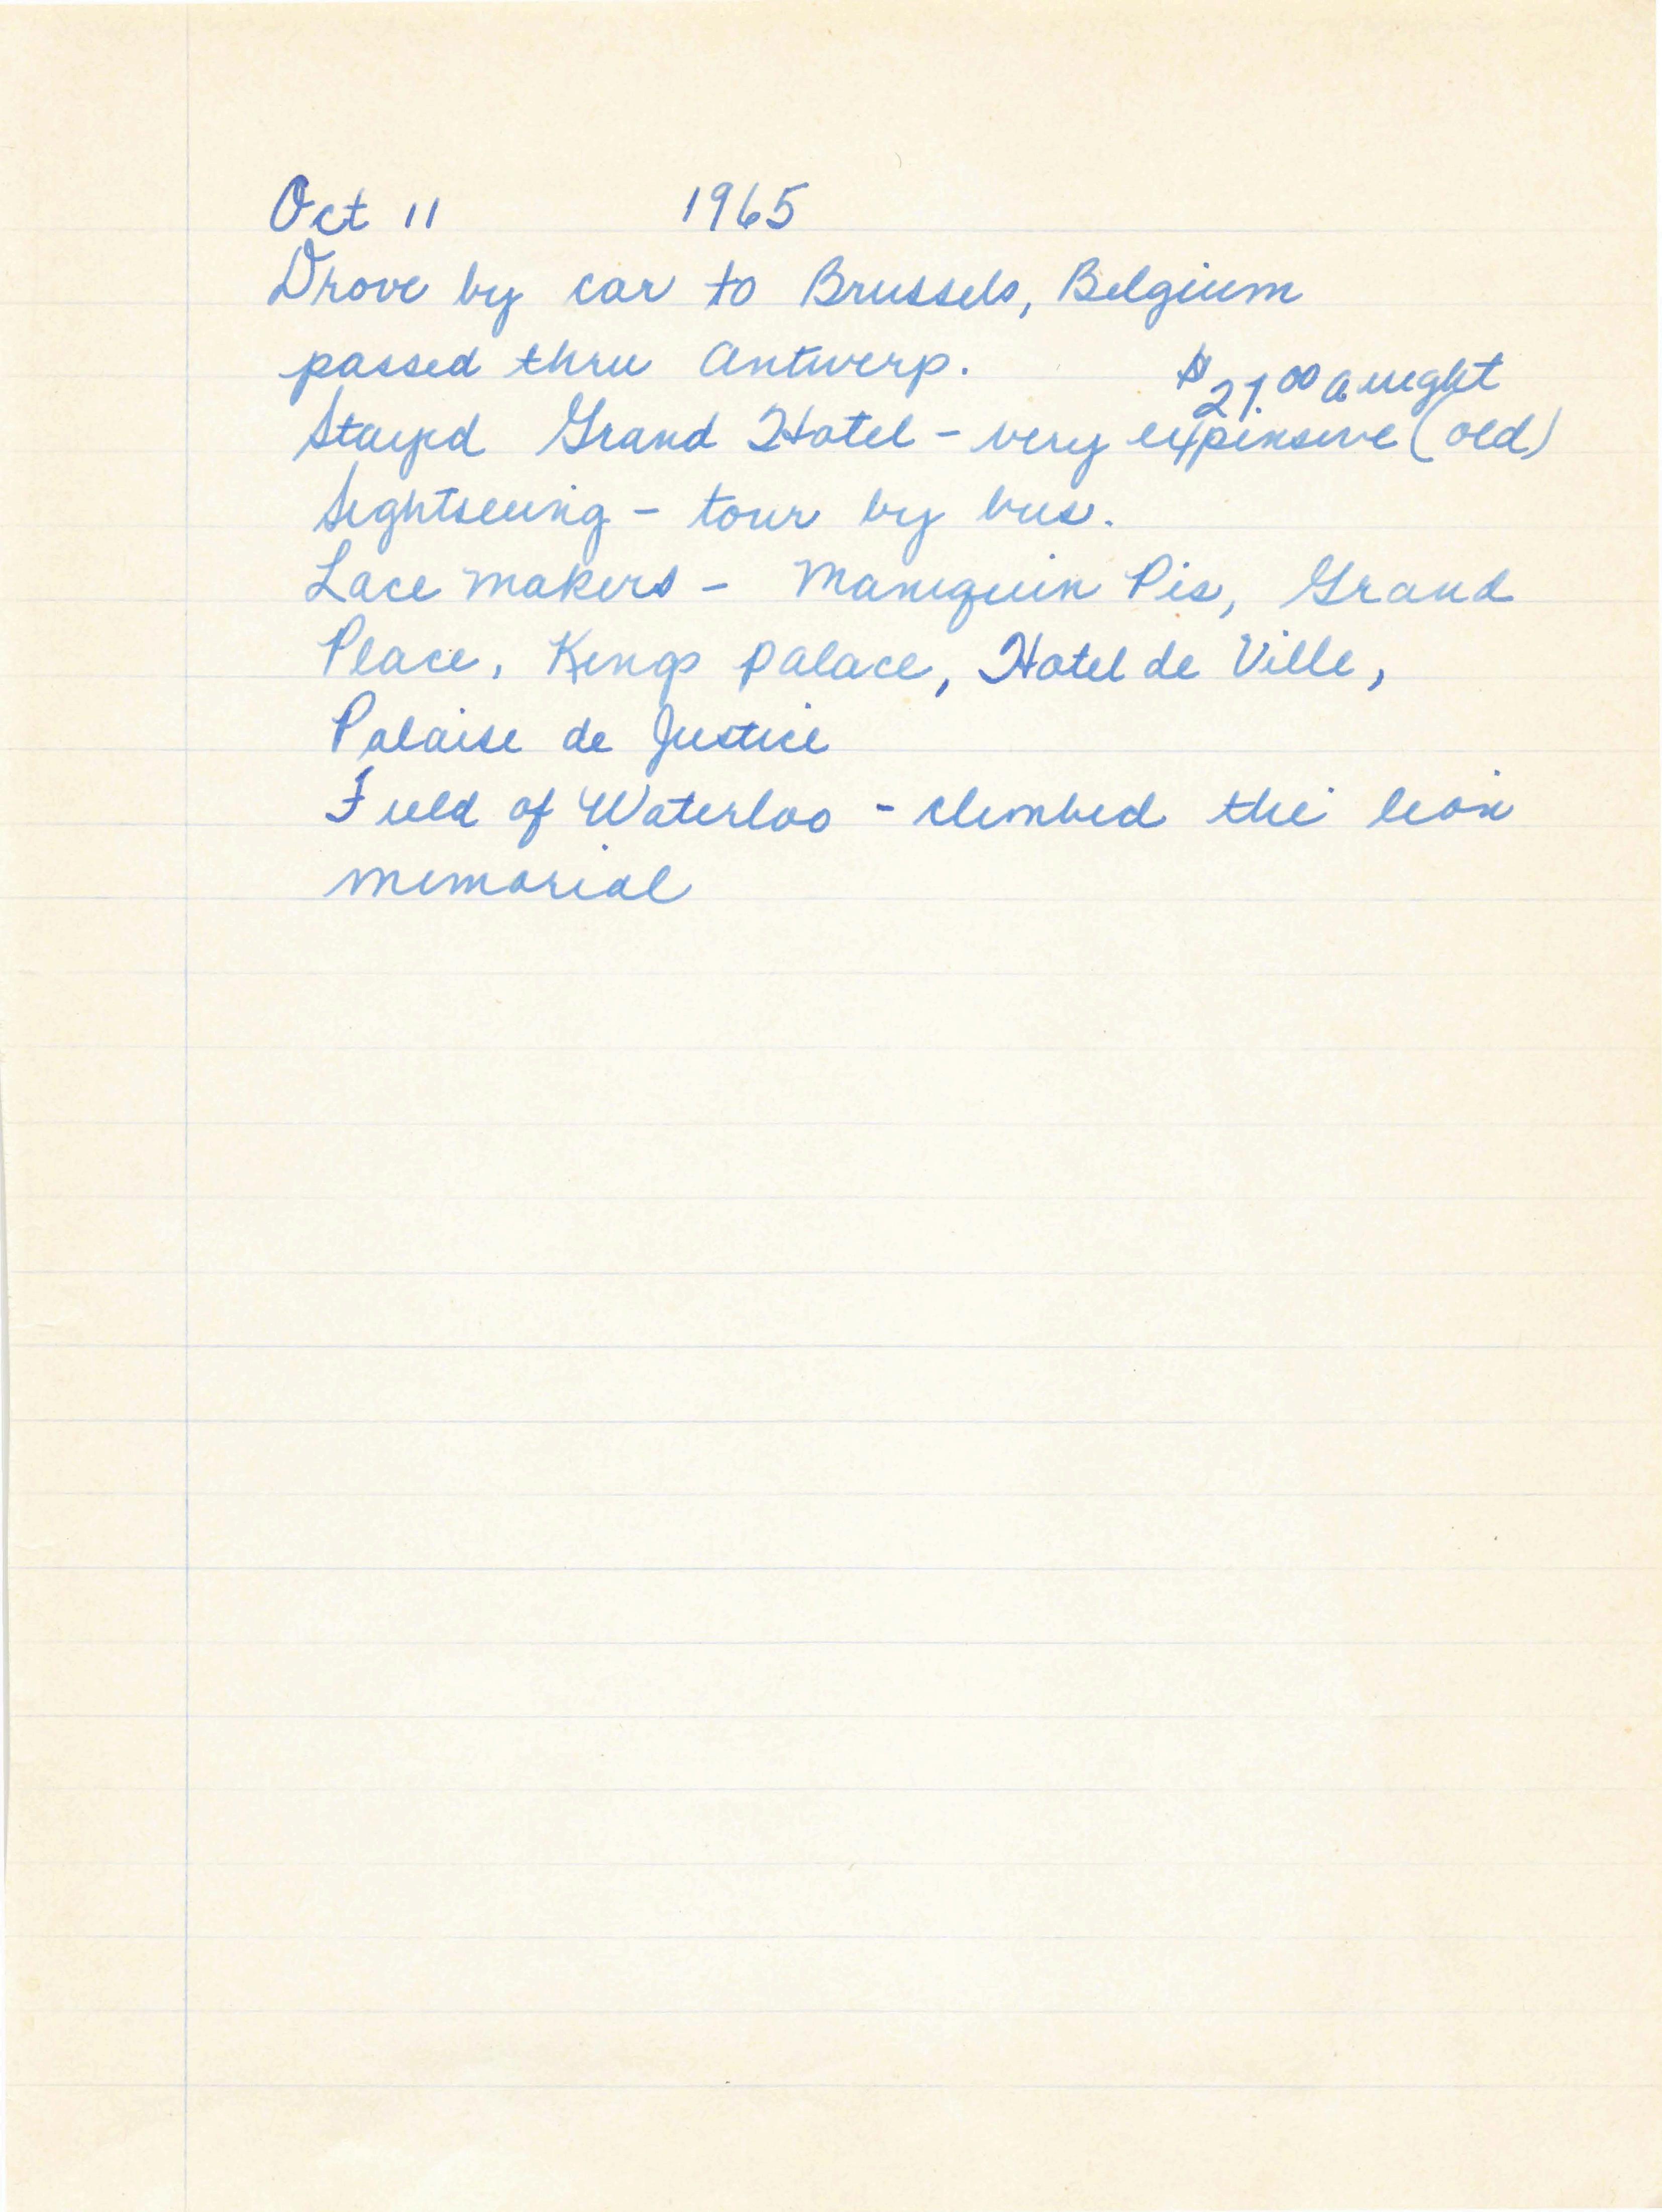 Oct 11 1965
Drove by car to Brussels, Belgium
passed thru Antwerp.
$21.00 a night
Stayed Grand Hotel - very expensive (old)
Sightseeing - tour by bus.
Lace makers - Manequin Pis, Grand
Place, Kings palace, Hotel de Ville,
Palaise de Justice
Field of Waterloo - climbed the lion
memorial